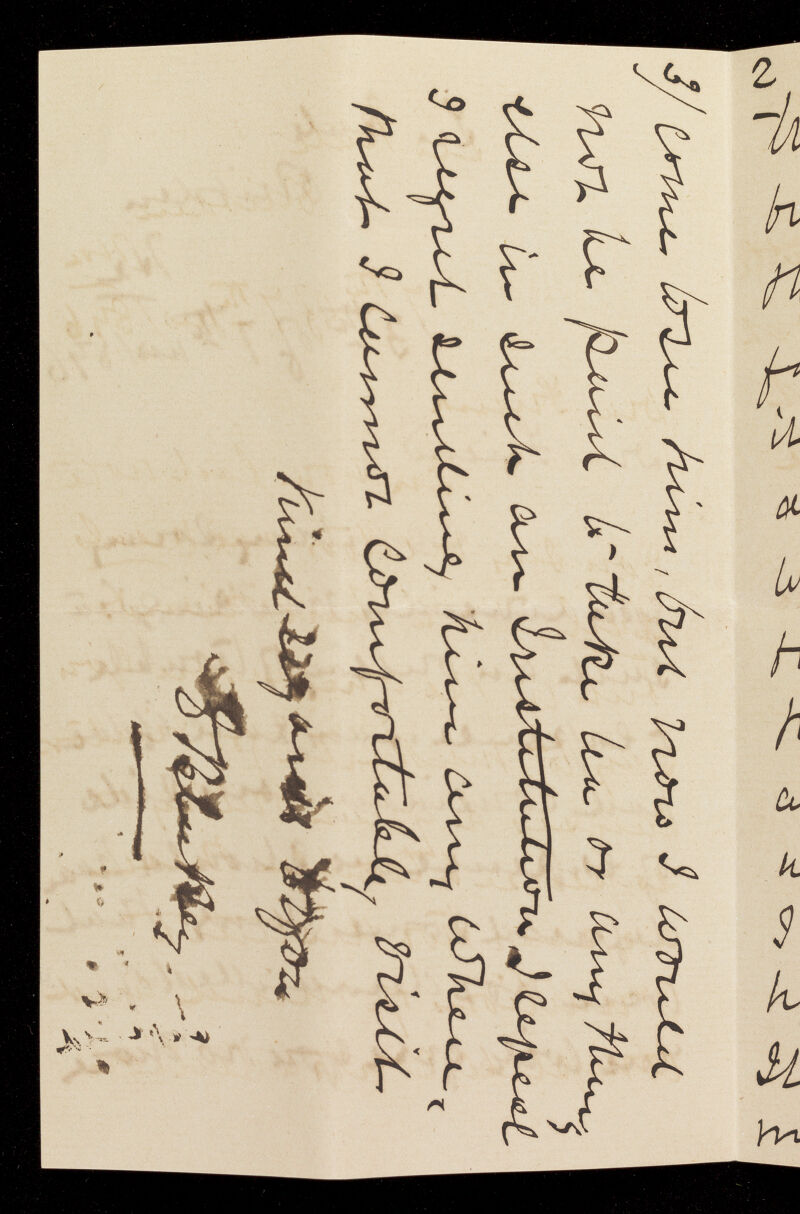 3/ come to see him, but now I would
not be paid to take tea or any thing
else in such an Institution, I repeat
I regret sending him any where
that I cannot comfortably visit.
Kind regards to you
2